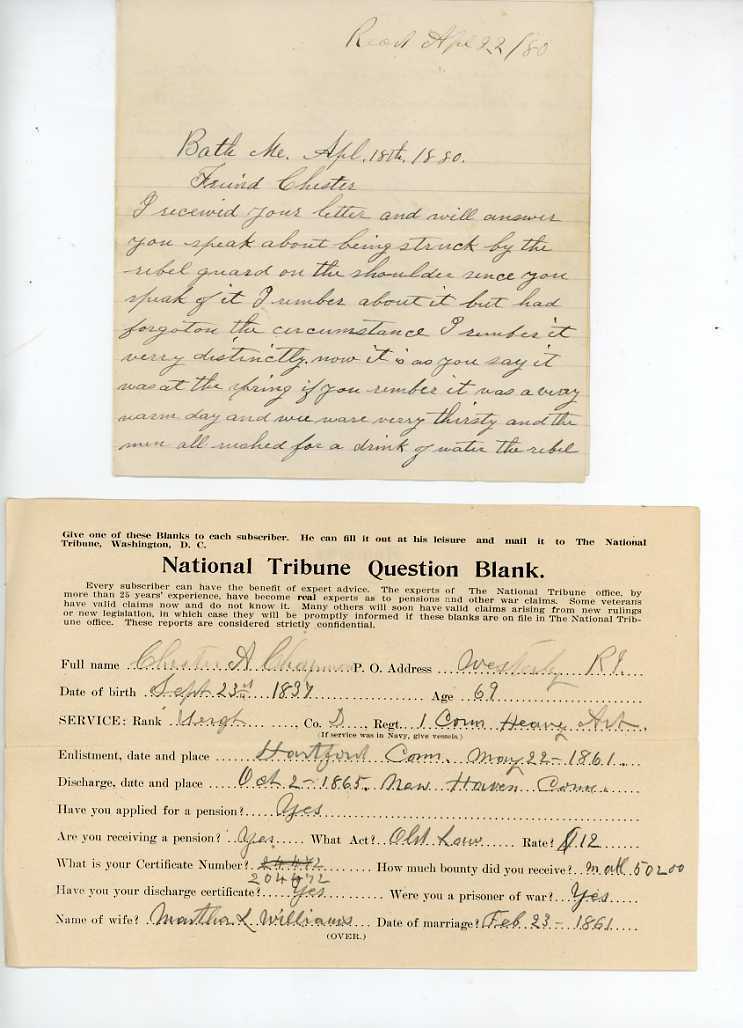 Recd Apl 22/80
Bath Me. Apl. 18th. 1880.
Freind Chester
I receivid your letter and will answer
you speak about being struck by the
rebel guard on the shoulder since you
speak of it I rember about it but had
forgoton the circumstance I rember it
verry distinctly. now it is as you say it
was at the spring if you rember it was a verry
warm day and wee ware verry thirsty and the
men all rushed for a drink of water the rebel
Give one of these Blanks to each subscriber. He can fill it out at his leisure and mail it to The National
Tribune, Washington, D. C.
National Tribune Question Blank.
Every subscriber can have the benefit of expert advice. The experts of The National Tribune office, by
more than 25 years' experience, have become real experts as to pensions and other war claims. Some veterans
have valid claims now and do not know it. Many others will soon have valid claims arising from new rulings
or new legislation, in which case they will be promptly informed if these blanks are on file in The National Trib-
une office. These reports are considered strictly confidential.
Full name Chester A Chapman P. O. Address Westerly R I.
Date of birth Sept 23rd 1837 Age 69
SERVICE: Rank Sergt, Co. D, Regt. 1 Conn Heavy Art.
(If service was in Navy, give vessels.)
Enlistment, date and place Hartford Conn. May 22-1861.
Discharge, date and place Oct 2-1865. New Haven Conn.
Have you applied for a pension? Yes
Are you receiving a pension? Yes. What Act? Old Law Rate? $12
What is your Certificate Number? How much bounty did you receive? in all 502 00
204472
Have you your discharge certificate? Yes Were you a prisoner of war? Yes
Name of wife? Martha L Williams Date of marriage? Feb 23-1861
(OVER.)